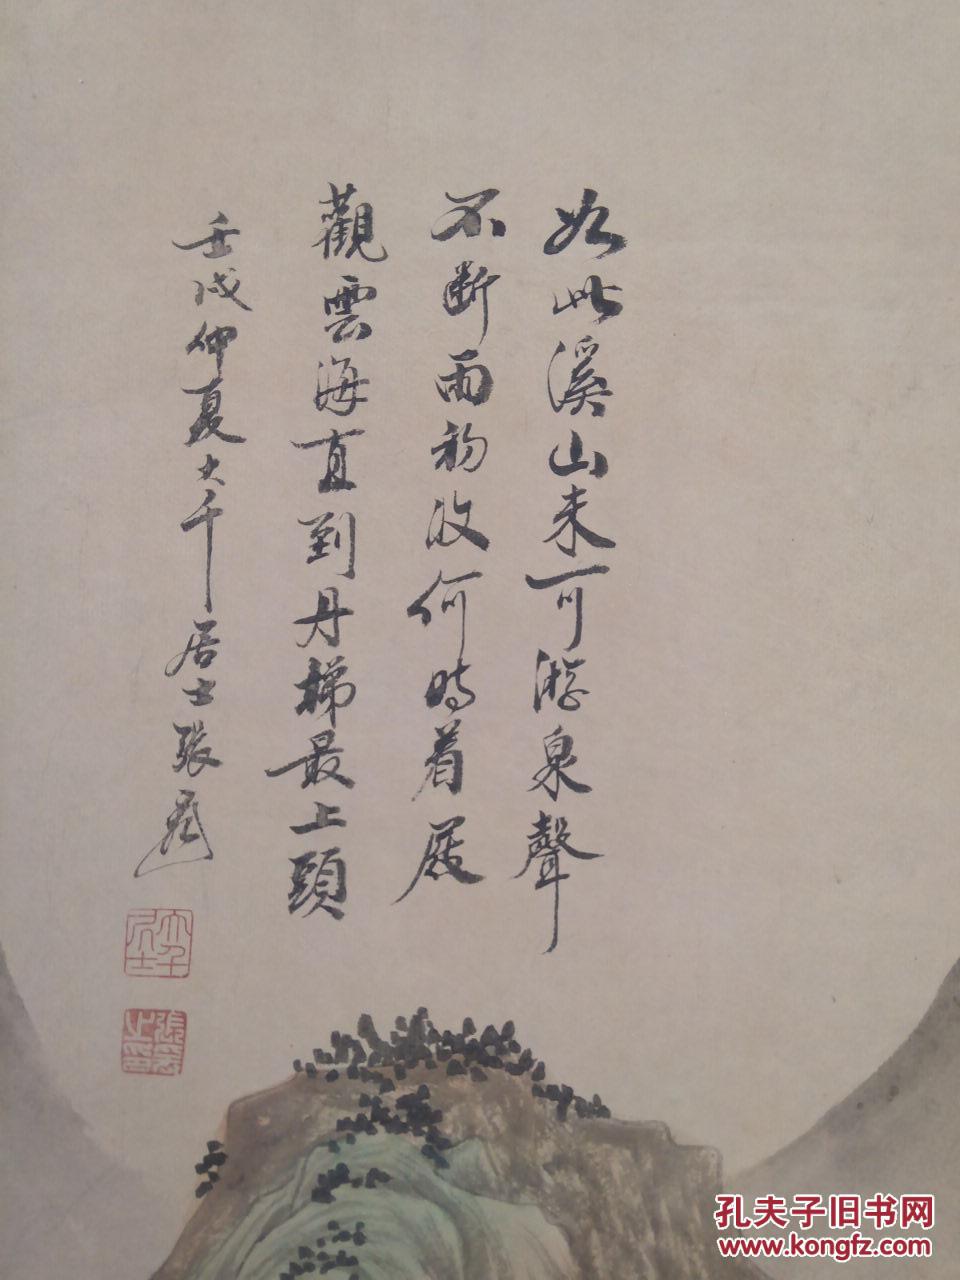 如此溪山未可游泉聲
不断雨初收何時着屐
觀雲海直到丹梯最上頭
壬戌仲夏大千居士張爰
大千居士
張爰之印
孔夫子旧书网
www.kongfz.com